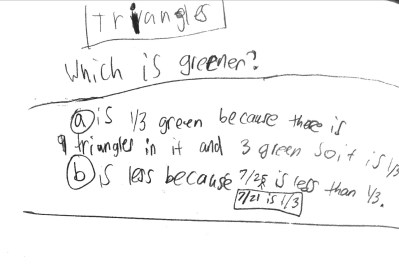 triangles
Which is greener?
(a) is 1/3 green because there is
9 triangles in it and 3 green so it is 1/3
(b) is less because 7/25 is less than 1/3.
7/21 is 1/3